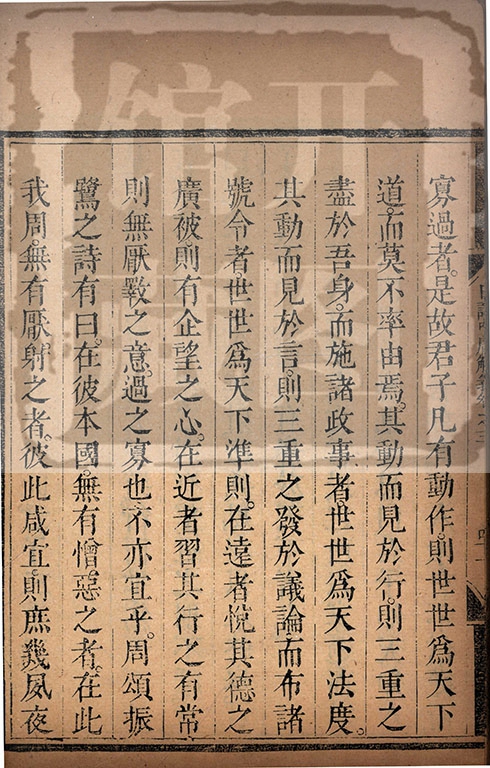 寡過者。是故君子凡有動作。則世世爲天下
道。而莫不率由焉。其動而見於行。則三重之
盡於吾身。而施諸政事者。世世爲天下法度。
其動而見於言。則三重之發於議論而布諸
號令者。世世爲天下準則。在遠者悅其德之
廣被。則有企望之心。在近者習其行之有常
則無厭斁之意。過之寡也。不亦宜乎。周頌振
鷺之詩有曰。在彼本國。無有憎惡之者。在此
我周。無有厭射之者。彼此咸宜。則庶幾夙夜